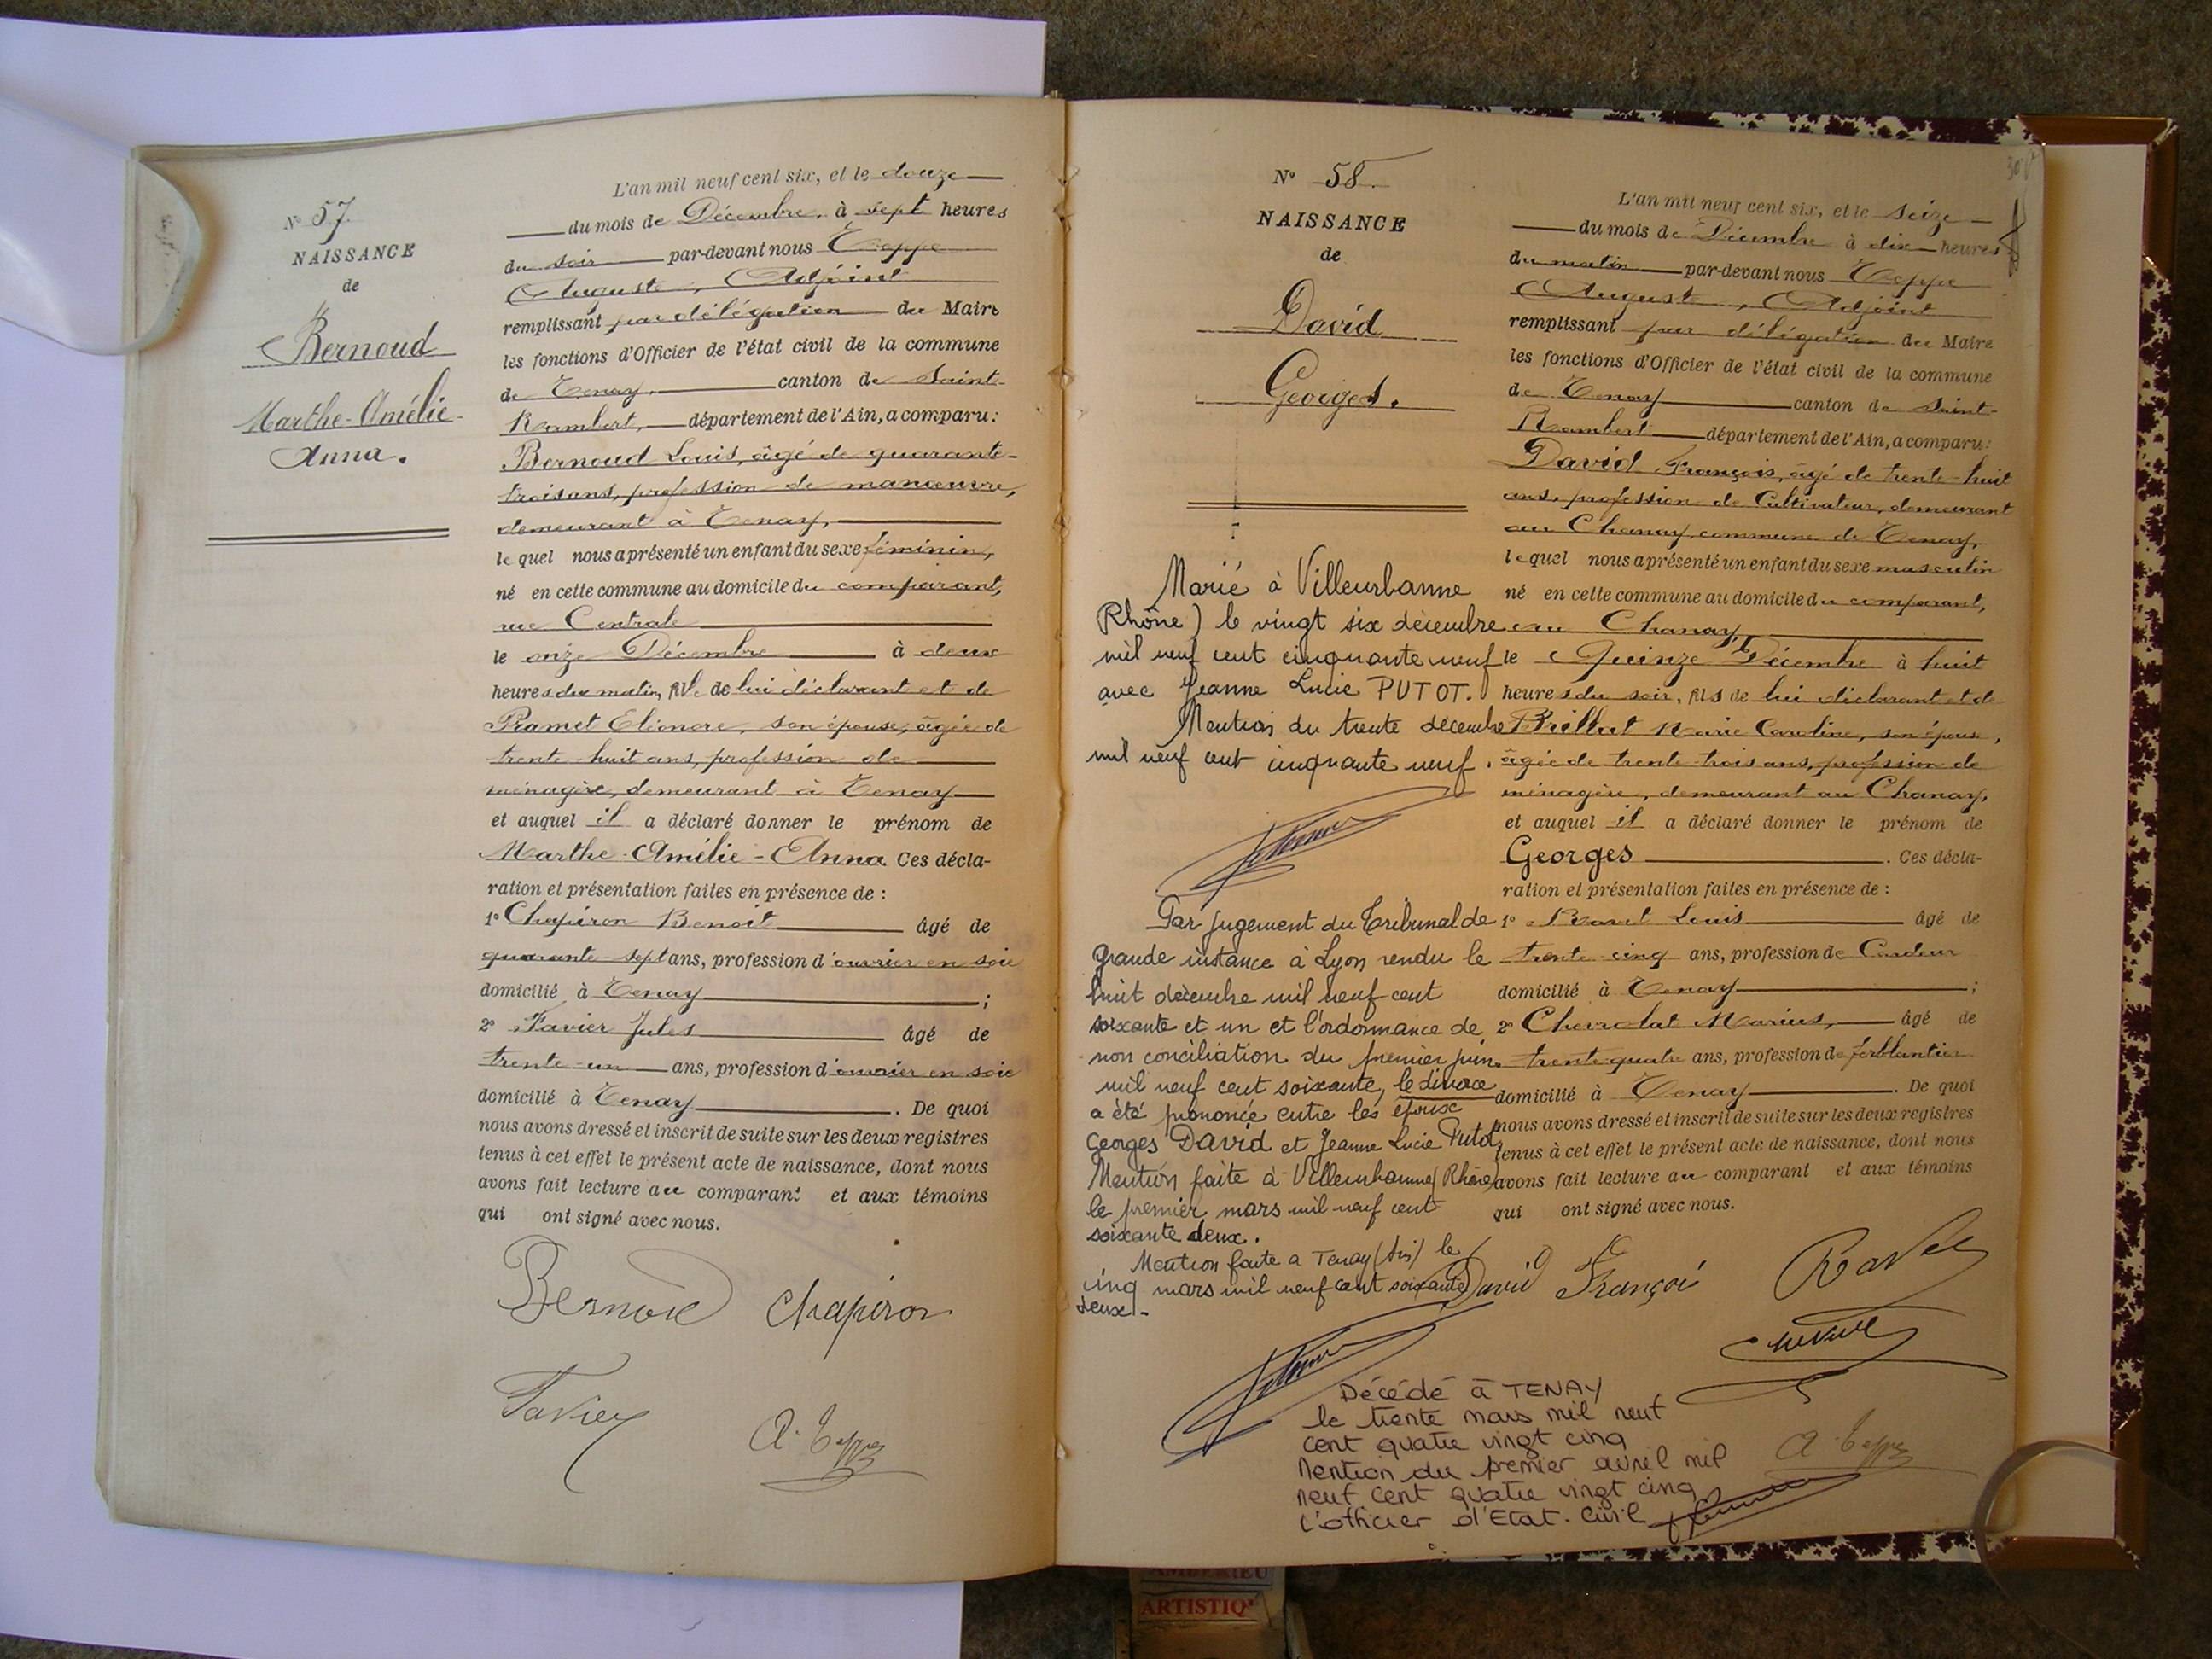 N° 57.
NAISSANCE
de
Bernoud
Marthe-Amélie-
Anna.
L'an mil neuf cent six, et le douze
du mois de Décembre, à sept heures
du soir par-devant nous Teppe
Auguste, Adjoint
remplissant par délégation du Maire
les fonctions d'Officier de l'état civil de la commune
de Tenay, canton de Saint-
Rambert, département de l'Ain, a comparu:
Bernoud Louis, âgé de quarante-
trois ans, profession de manœuvre,
demeurant à Tenay,
le quel nous a présenté un enfant du sexe féminin,
né en cette commune au domicile du comparant,
rue Centrale
le onze Décembre à deux
heures du matin, fille de lui déclarant et de
Ramet Eléonore, son épouse, âgée de
trente-huit ans, profession de
ménagère, demeurant à Tenay
et auquel il a déclaré donner le prénom de
Marthe-Amélie-Anna. Ces décla-
ration et présentation faites en présence de :
1° Chapiron Benoit âgé de
quarante-sept ans, profession d'ouvrier en soie
domicilié à Tenay ;
2° Favier Jules âgé de
trente-un ans, profession d'ouvrier en soie
domicilié à Tenay . De quoi
nous avons dressé et inscrit de suite sur les deux registres
tenus à cet effet le présent acte de naissance, dont nous
avons fait lecture au comparant et aux témoins
qui ont signé avec nous.
Bernoud Chapiron
Favier
A. Teppe
N° 58.
NAISSANCE
de
David
Georges.
L'an mil neuf cent six, et le seize
du mois de Décembre à dix heures
du matin par-devant nous Teppe
Auguste, Adjoint
remplissant par délégation du Maire
les fonctions d'Officier de l'état civil de la commune
de Tenay canton de Saint-
Rambert département de l'Ain, a comparu:
David François, âgé de trente-huit
ans, profession de Cultivateur, demeurant
au Chanay, commune de Tenay,
le quel nous a présenté un enfant du sexe masculin
né en cette commune au domicile du comparant,
au Chanay,
le Quinze Décembre à huit
heures du soir, fils de lui déclarant et de
Brillat Marie Caroline, son épouse,
âgée de trente-trois ans, profession de
ménagère, demeurant au Chanay,
et auquel il a déclaré donner le prénom de
Georges . Ces décla-
ration et présentation faites en présence de :
1° Ravet Louis âgé de
trente-cinq ans, profession de Cardeur
domicilié à Tenay ;
2° Chevrolat Marius, âgé de
trente-quatre ans, profession de ferblantier
domicilié à Tenay . De quoi
nous avons dressé et inscrit de suite sur les deux registres
tenus à cet effet le présent acte de naissance, dont nous
avons fait lecture au comparant et aux témoins
qui ont signé avec nous.
Marié à Villeurbanne
Rhône) le vingt six décembre
mil neuf cent cinquante neuf
avec Jeanne Lucie PUTOT.
Mention du trente décembre
mil neuf cent cinquante neuf.
Par jugement du Tribunal de
Grande instance à Lyon rendu le
huit décembre mil neuf cent
soixante et un et l'ordonnance de
non conciliation du premier juin
mil neuf cent soixante, le divorce
a été prononcé entre les époux
Georges David et Jeanne Lucie Putot.
Mention faite à Villeurbanne (Rhône)
le premier mars mil neuf cent
soixante deux.
Mention faite a Tenay (Ain) le
cinq mars mil neuf cent soixante
deux.-
David François
Ravet
A. Teppe
Décédé à TENAY
le trente mars mil neuf
cent quatre vingt cinq
Mention du premier avril mil
neuf cent quatre vingt cinq
L'officier d'Etat. Civil
AMBERIEU
ARTISTIQ